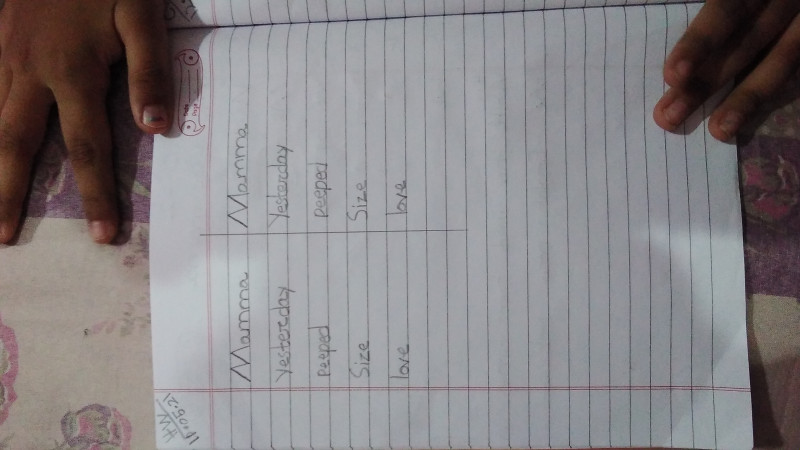 HW
11·05·21
Mamma Mamma
Yesterday Yesterday
peeped peeped
Size Size
love love
Date
Page